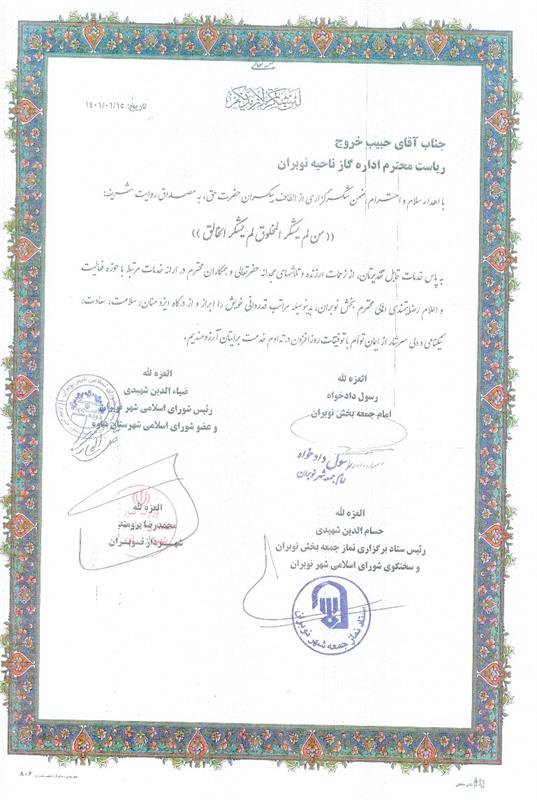 لئن شکرتم لازیدنکم
تاریخ: ۱۴۰۱/۰۶/۱۵
جناب آقای حبیب خروج
ریاست محترم اداره گاز ناحیه نوبران
با اهداء سلام و احترام، ضمن شکرگزاری از الطاف بیکران حضرت حق، به مصداق روایت شریف:
((من لم یشکر المخلوق لم یشکر الخالق))
به پاس خدمات قابل تقدیرتان، از زحمات ارزنده و تلاشهای مجدانه حضرتعالی و همکاران محترم در ارائه خدمات مرتبط با حوزه فعالیت
و اعلام رضایتمندی اهالی محترم بخش نوبران، بدینوسیله مراتب قدردانی خویش را ابراز و از درگاه ایزد منان، سلامت، سعادت،
نیکنامی و دلی سرشار از ایمان توأم با توفیقات روزافزون در تداوم خدمت برایتان آرزومندیم.
العزه لله
رسول دادخواه
امام جمعه بخش نوبران
رسول دادخواه
امام جمعه شهر نوبران
العزه لله
ضیاء الدین شهیدی
رئیس شورای اسلامی شهر نوبران
و عضو شورای اسلامی شهرستان ساوه
العزه لله
حسام الدین شهیدی
رئیس ستاد برگزاری نماز جمعه بخش نوبران
و سخنگوی شورای اسلامی شهر نوبران
ستاد نماز جمعه شهر نوبران
العزه لله
محمدرضا برومند
شهردار نوبران
۸۰۶